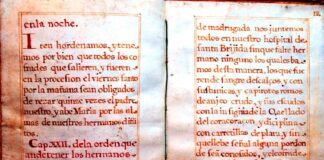 en la noche.
Iten hordenamos, y tene
mos por bien que todos los co
frades que salieren, y fueren
en la procesion el viernes santo
por la mañana sean obligados
de rezar quinze veces el padre
nuestro, y abe Maria por las ani
mas de nuestros hermanos difū
tos.
Cap. XXII. de la orden que
an de tener los hermanos
de madrugada nos juntemos
todos en nuestro hospital de
santa Brijida sin que falte her
mano ninguno los quales ba
mos desta manera, los que fue
ren de sangre descalços, y con
sus tunicas, y capirotes romos
de anjeo crudo, y
con la insignia de la
del coraçon, y dicipli
con carretillas de plata, y sin
que lleben señal alguna por
donde sean conosidos, y